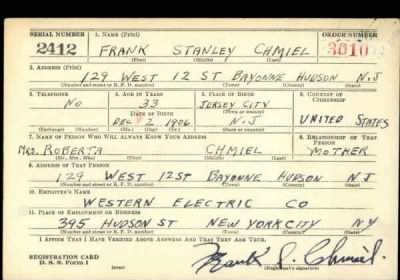 SERIAL NUMBER 1. NAME (Print) ORDER NUMBER
2412 FRANK STANLEY CHMIEL 3010
(First) (Middle) (Last)
2. ADDRESS (Print)
129 WEST 12 ST BAYONNE HUDSON N.J
(Number and street or R. F. D. number) (Town) (County) (State)
3. TELEPHONE 4. AGE IN YEARS 5. PLACE OF BIRTH 6. COUNTRY OF CITIZENSHIP
NO 33 JERSEY CITY
(Town or county)
DATE OF BIRTH
DEC 2 1906 N.J UNITED STATES
(Exchange) (Number) (Mo.) (Day) (Yr.) (State or country)
7. NAME OF PERSON WHO WILL ALWAYS KNOW YOUR ADDRESS 8. RELATIONSHIP OF THAT PERSON
MRS. ROBERTA CHMIEL MOTHER
(Mr., Mrs., Miss) (First) (Middle) (Last)
9. ADDRESS OF THAT PERSON
129 WEST 12 ST BAYONNE HUDSON NJ
(Number and street or R. F. D. number) (Town) (County) (State)
10. EMPLOYER'S NAME
WESTERN ELECTRIC CO
11. PLACE OF EMPLOYMENT OR BUSINESS
395 HUDSON ST NEW YORK CITY NY
(Number and street or R. F. D. number) (Town) (County) (State)
I AFFIRM THAT I HAVE VERIFIED ABOVE ANSWERS AND THAT THEY ARE TRUE.
REGISTRATION CARD
D. S. S. Form 1 Frank S. Chmiel
(Registrant's signature)